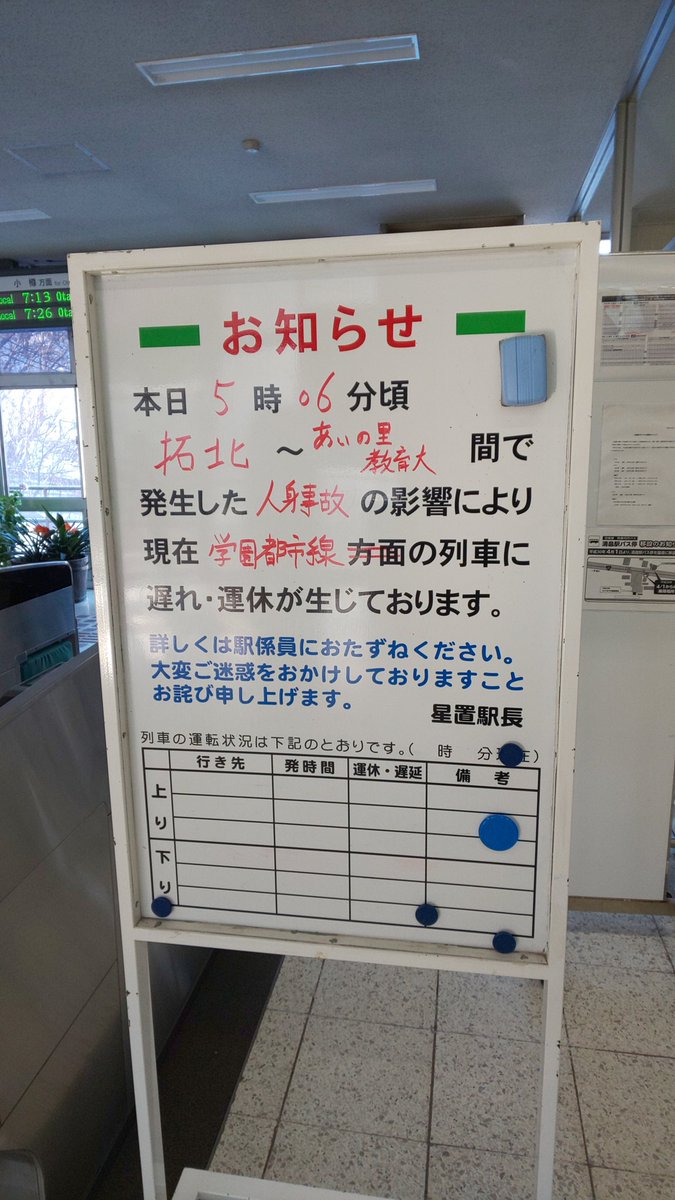 小樽方面
ocal 7:13 Ota
ocal 7:26 Ota
お知らせ
本日 5 時 06 分頃
拓北 〜 あいの里教育大 間で
発生した 人身事故 の影響により
現在 学園都市線 方面の列車に
遅れ・運休が生じております。
詳しくは駅係員におたずねください。
大変ご迷惑をおかけしておりますこと
お詫び申し上げます。
星置駅長
列車の運転状況は下記のとおりです。( 時 分現在)
行き先 発時間 運休・遅延 備考
上り
下り